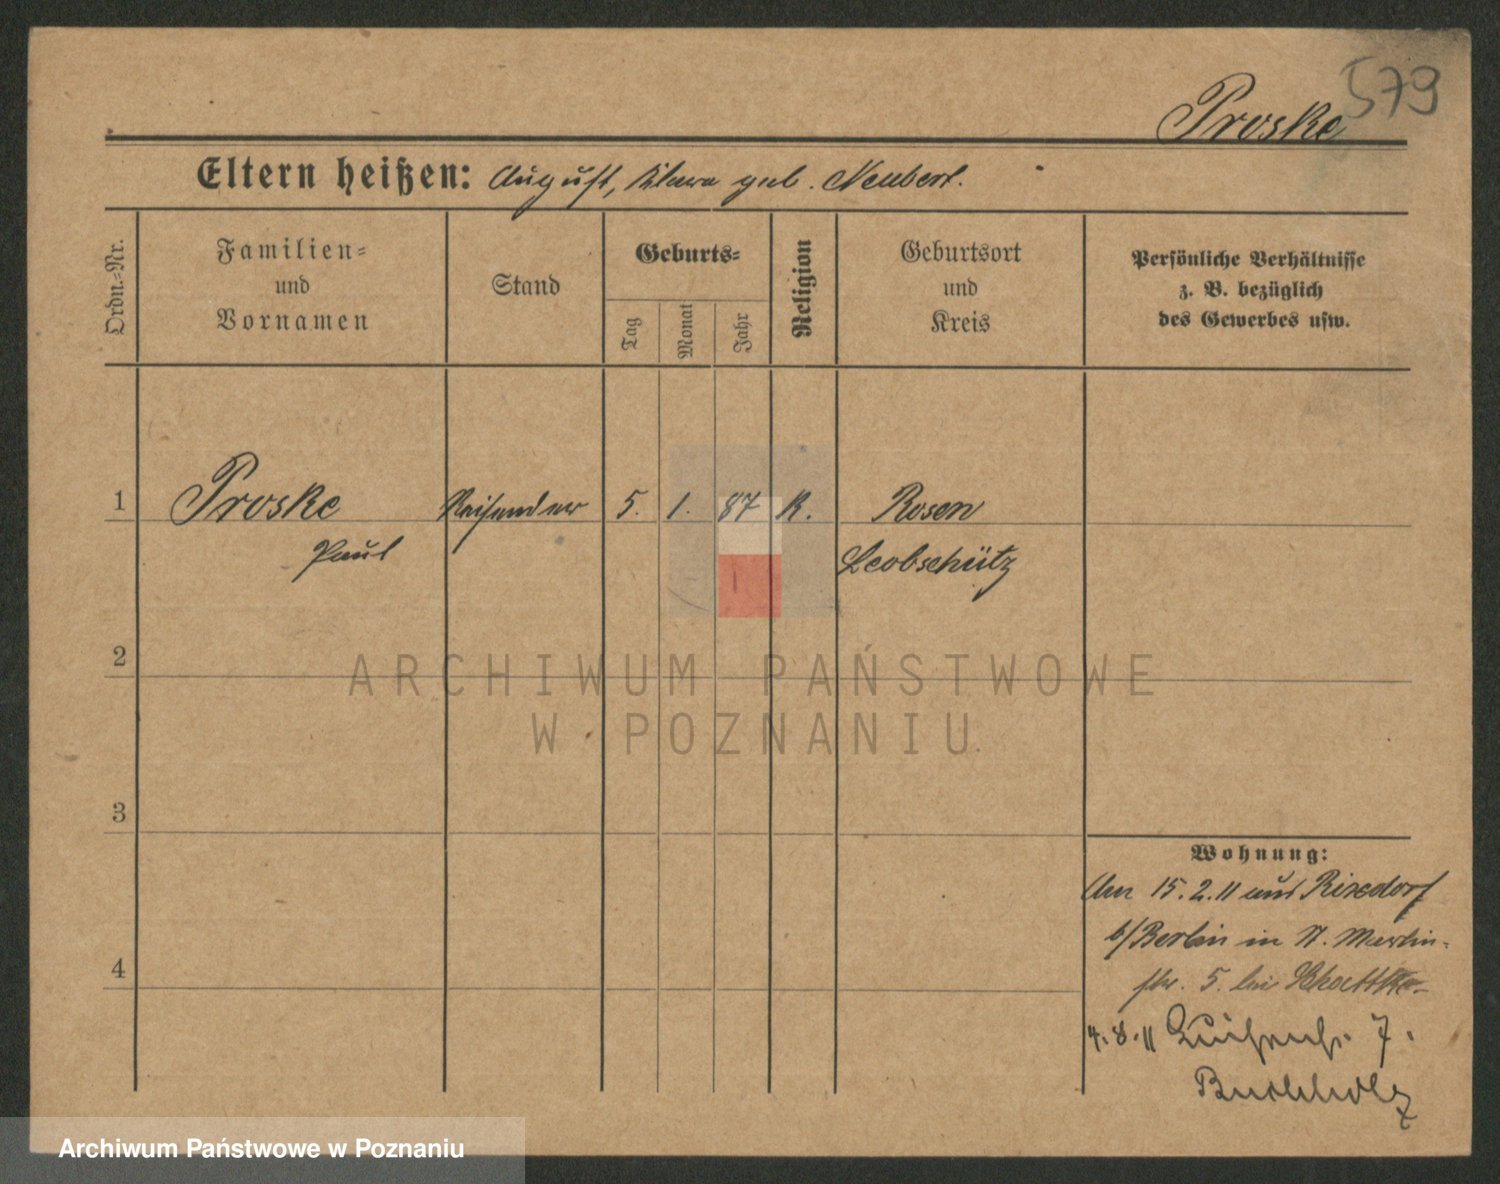 579
Proske
Eltern heißen: August, Klara geb. Neubert.
Ordn.-Nr.
Familien-
und
Vornamen
Stand
Geburts-
Tag
Monat
Jahr
Religion
Geburtsort
und
Kreis
Persönliche Verhältnisse
z. B. bezüglich
des Gewerbes usw.
1 Proske Reisender 5. 1. 87 K. Rosen
Paul Leobschütz
2
ARCHIWUM PAŃSTWOWE
W POZNANIU
3
Wohnung:
Am 15.2.11 aus Rixdorf
b/Berlin in St. Martin-
4
str. 5. bei
4.8.11 Luisenstr. 7.
Buchholz
Archiwum Państwowe w Poznaniu